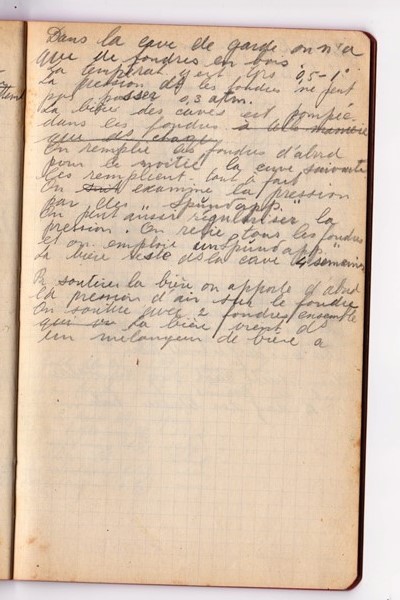 Dans la cave de garde on n'a
que de foudres en bois
La températ. y est grs 0,5-1°.
La pression ds les foudres ne peut
pas passer 0,3 atm.
La bière des caves est pompée
dans les foudres à la manière
que ds chaq.
On remplie les foudres d'abord
pour le moitié la cuve suivante
les remplient tout à fait
On examine la pression
par des "Spundapp."
On peut aussi régulariser la
pression. On relie tous les foudres
et on emploie un Spundapp.
La bière reste ds la cave 4 semaines
P. soutirer la bière on apporte d'abord
la pression d'air sur le foudre
On soutire avec 2 foudres ensemble
qui La bière vient ds
un mélangeur de bière à